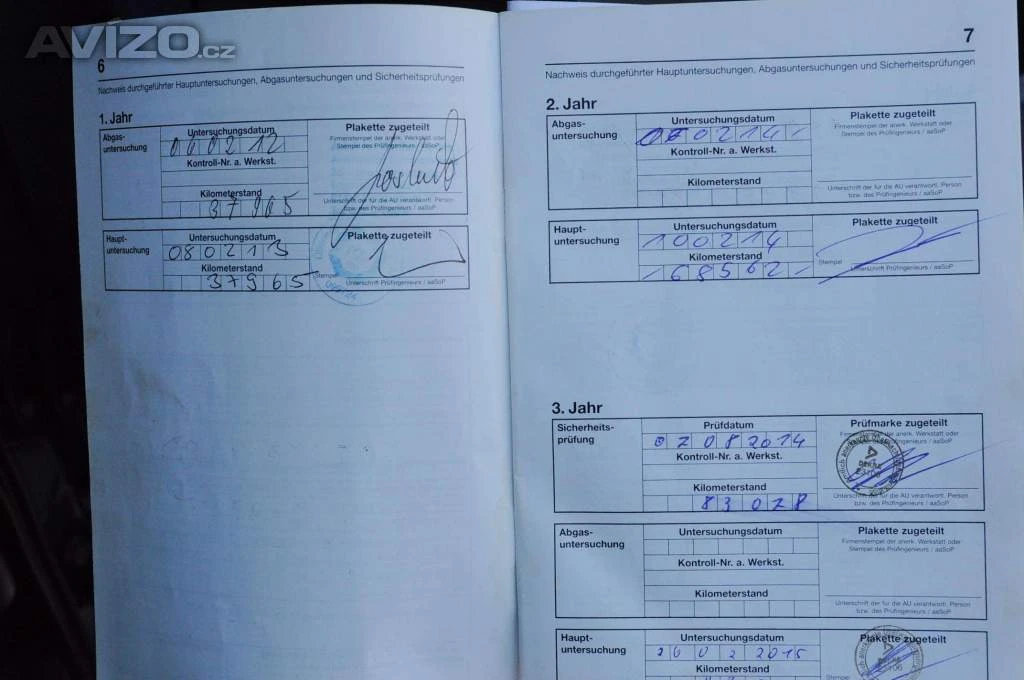 AVÍZO.cz
6
Nachweis durchgeführter Hauptuntersuchungen, Abgasuntersuchungen und Sicherheitsprüfungen
1. Jahr
Abgas-
untersuchung
Untersuchungsdatum
Kontroll-Nr. a. Werkst.
Kilometerstand
Plakette zugeteilt
Firmenstempel der anerk. Werkstatt oder
Stempel des Prüfingenieurs / aaSoP
Unterschrift der für die AU verantwortl. Person
bzw. des Prüfingenieurs / aaSoP
Haupt-
untersuchung
Untersuchungsdatum
080213
Kilometerstand
37965
Plakette zugeteilt
Stempel
Unterschrift Prüfingenieurs / aaSoP
7
Nachweis durchgeführter Hauptuntersuchungen, Abgasuntersuchungen und Sicherheitsprüfungen
2. Jahr
Abgas-
untersuchung
Untersuchungsdatum
Kontroll-Nr. a. Werkst.
Kilometerstand
Plakette zugeteilt
Firmenstempel der anerk. Werkstatt oder
Stempel des Prüfingenieurs / aaSoP
Unterschrift der für die AU verantwortl. Person
bzw. des Prüfingenieurs / aaSoP
Haupt-
untersuchung
Untersuchungsdatum
100214
Kilometerstand
-68562-
Plakette zugeteilt
Stempel
Unterschrift Prüfingenieurs / aaSoP
3. Jahr
Sicherheits-
prüfung
Prüfdatum
07082014
Kontroll-Nr. a. Werkst.
Kilometerstand
83078
Prüfmarke zugeteilt
Firmenstempel der anerk. Werkstatt oder
Stempel des Prüfingenieurs / aaSoP
Unterschrift der für die AU verantwortl. Person
bzw. des Prüfingenieurs / aaSoP
Abgas-
untersuchung
Untersuchungsdatum
Kontroll-Nr. a. Werkst.
Kilometerstand
Plakette zugeteilt
Firmenstempel der anerk. Werkstatt oder
Stempel des Prüfingenieurs / aaSoP
Unterschrift der für die AU verantwortl. Person
bzw. des Prüfingenieurs / aaSoP
Haupt-
untersuchung
Untersuchungsdatum
Kilometerstand
Plakette zugeteilt
Stempel